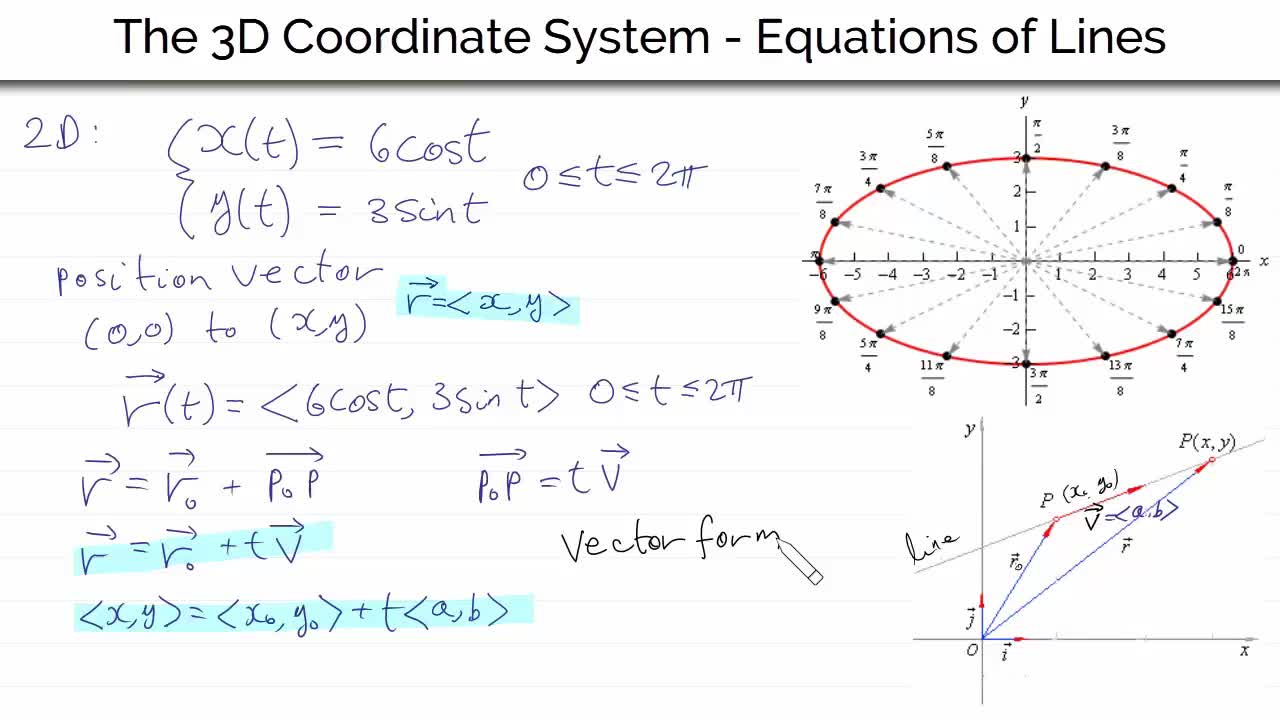 The 3D Coordinate System - Equations of Lines
2D:
x(t) = 6cost
y(t) = 3sint
0 ≤ t ≤ 2π
position vector
(0,0) to (x,y)
r⃗=<x,y>
r⃗(t) = <6cost, 3sin t> 0 ≤ t ≤ 2π
r⃗ = r⃗₀ + P₀P⃗
P₀P⃗ = t V⃗
r⃗ = r⃗₀ + t V⃗
vector form
<x,y> = <x₀,y₀> + t<a,b>
y
π/2
5π/8
3π/8
3π/4
π/4
7π/8
π/8
3
2
1
0
π
x
-6 -5 -4 -3 -2 -1 1 2 3 4 5 6 2π
-1
-2
-3
9π/8
15π/8
5π/4
7π/4
11π/8
3π/2
13π/8
y
P(x, y)
P (x₀ y₀)
V⃗ = <a,b>
line
r⃗₀
r⃗
j⃗
O
i⃗
x